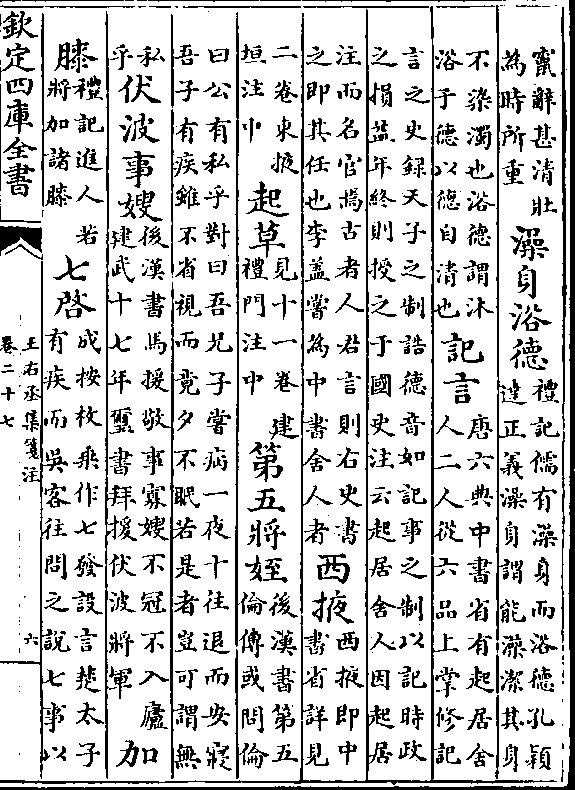 辭甚清壯
為時所重
澡身浴德
禮記儒有澡身而浴德孔穎
達正義澡身謂能澡潔其身
不染濁也浴德謂沐
浴于德以德自清也
記言
唐六典中書省有起居舍
人二人從六品上掌修記
言之史録天子之制誥德音如記事之制以記時政
之損益年終則授之于國史注云起居舍人因起居
注而名官焉古者人君言則右史書
之即其任也李蓋嘗為中書舍人者
西掖
西掖即中
書省詳見
二卷東掖
垣注中
起草
見十一卷建
禮門注中
第五將姪
後漢書第五
倫傳或問倫
曰公有私乎對曰吾兄子嘗病一夜十往退而安寢
吾子有疾雖不省視而竟夕不眠若是者豈可謂無
私
乎
伏波事嫂
後漢書馬援敬事寡嫂不冠不入廬
建武十七年璽書拜援伏波將軍
加
膝
禮記進人若
將加諸膝
七啓
成按枚乘作七發設言楚太子
有疾而吳客往問之說七事以
欽定四庫全書
王右丞集箋注
卷二十七
六